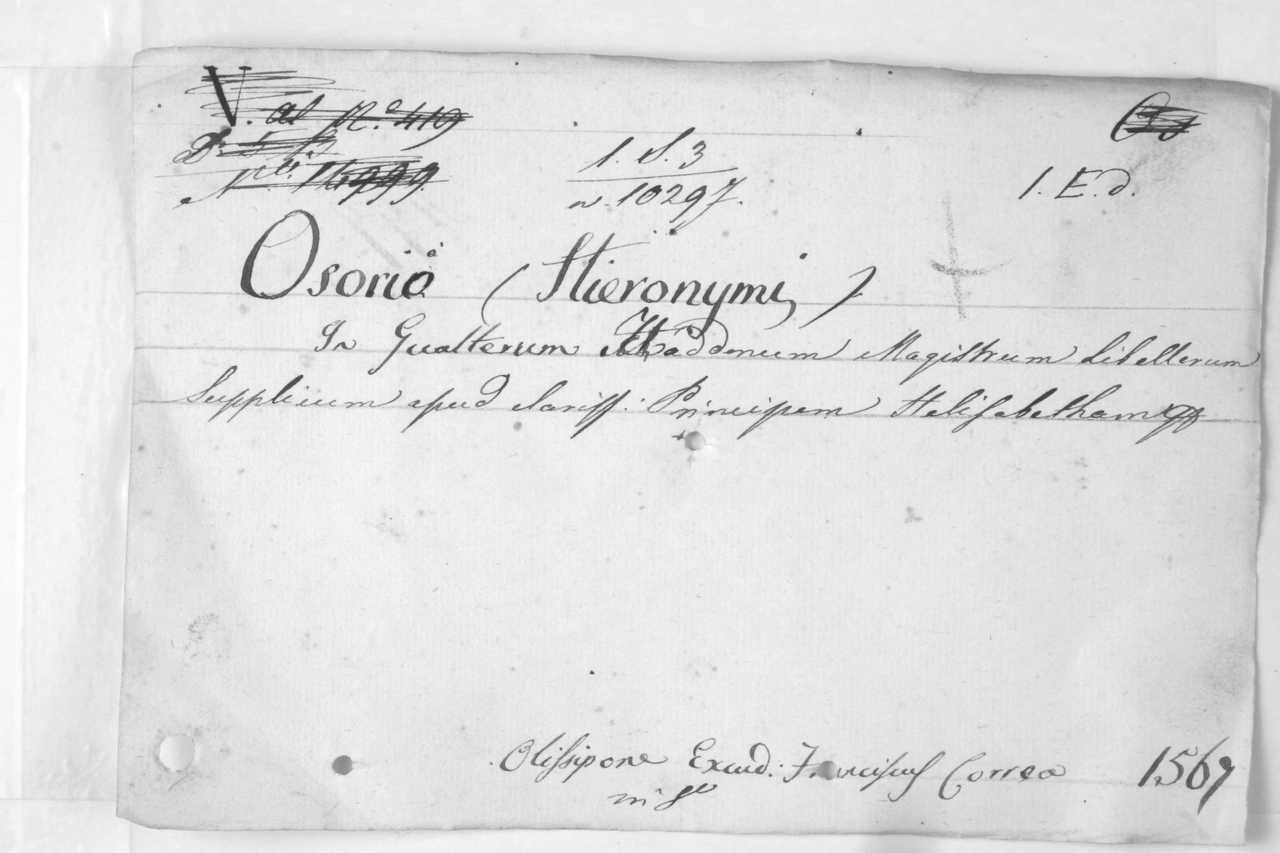 V. at N.º 419
N.º 14999
1. S. 3
n. 10297.
1. E. d.
Osorio (Hieronymi)
In Gualterum Haddonum Magistrum Libellorum
Supplicum apud clariss: Principem Helisabetham
Olissipone Excud: Franciscus Correa 1567
in 8º